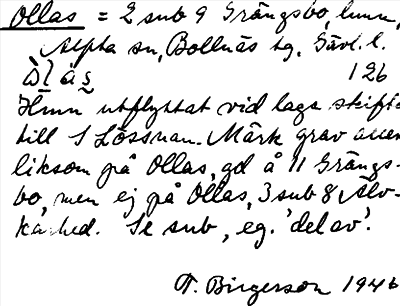 Ollas = 2 sub 9 Grängsbo, hmn,
Alfta sn, Bollnäs tg. Gävl. l.
òlạs̰ 126
Hmn utflyttat vid laga skifte
till S Lössnan. Märk grav accen
liksom på Ollas, gd å 11 Grängs-
bo, men ej på Ollas, 3 sub 8 Älv-
karhed. Se sub, eg. 'del av'.
T. Birgerson 1946